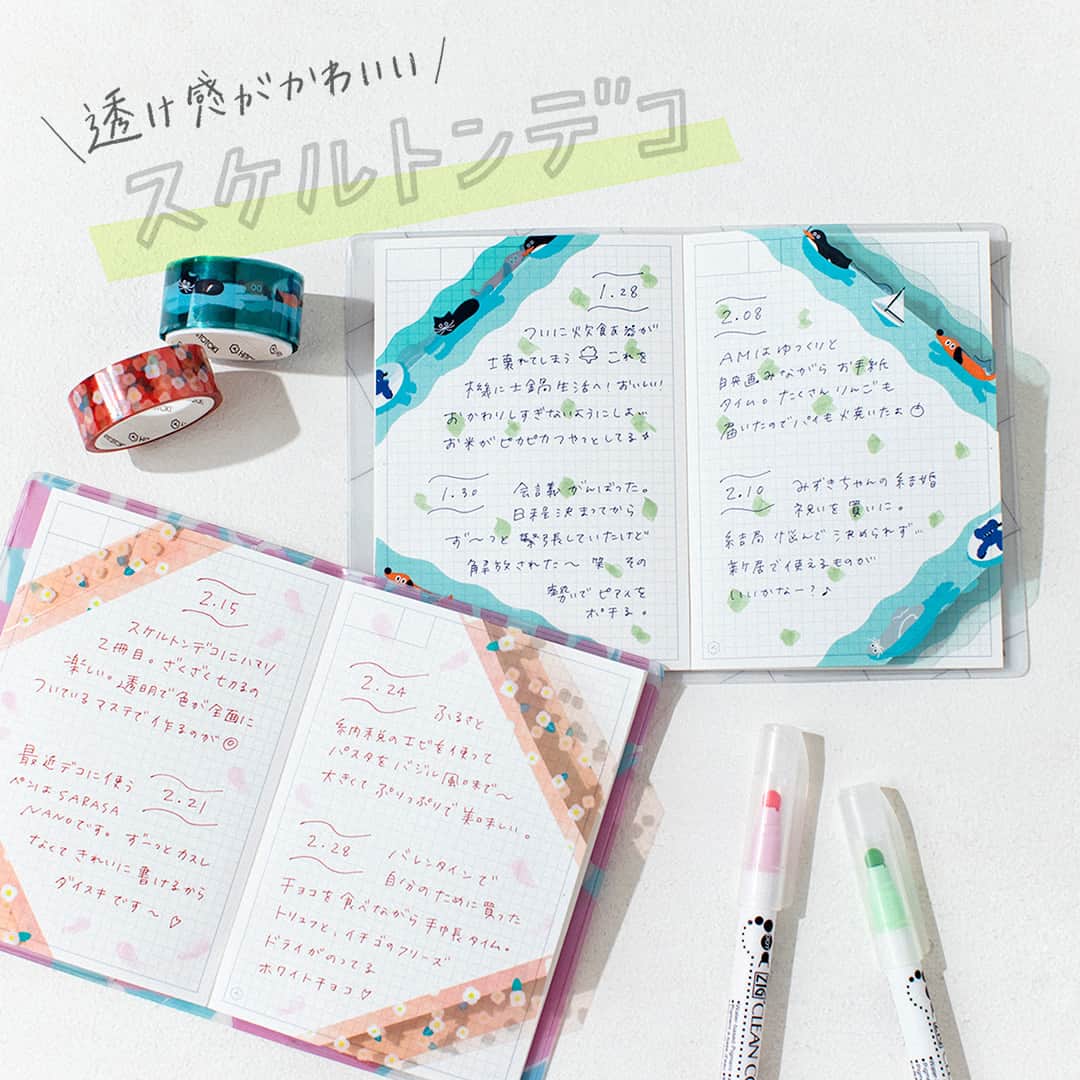 透け感がかわいい
スケルトンデコ
HITOTOKI
1.28
ついに炊飯器が
壊れてしまう これを
機に土鍋生活へ!おいしい!
おかわりしすぎないようにしよ…
お米がピカピカつやっとしてる
1.30 会議がんばった。
日程決まってから
ず〜っと緊張していたけど
解放された〜 笑 その
勢いでピアスを
ポチる。
2.08
AMはゆっくりと
映画みながら お手紙
タイム。たくさんりんごも
届いたのでパイも焼いたよ
2.10 みずきちゃんの結婚
祝いを買いに。
結局 悩んで決められず…
新居で使えるものが
いいかなー?♪
2.15
スケルトンデコにハマり
2冊目。ざくざく七刀るの
楽しい。透明で色が全面に
ついているマステで作るのが◎
最近デコに使う
2.21
ペンはSARASA
NANOです。ずーっとカスレ
なくてきれいに書けるから
ダイスキです〜♡
2.24 ふるさと
納税のエビを使って
パスタをバジル風味で〜
大きくてぷりっぷりで美味しい。
2.28 バレンタインで
自分のために買った
チョコを食べながら手帳タイム。
トリュフと、イチゴのフリーズ
ドライがのってる
ホワイトチョコ♡
ZIG CLEAN CO